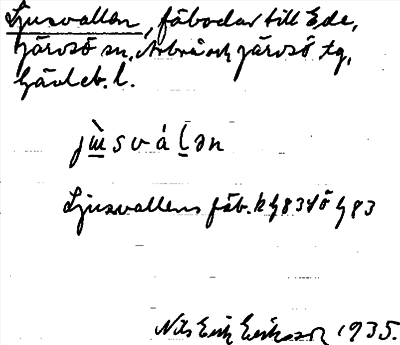 Ljusvallen, fäbodar till Ede,
Järvsö sn, Arbrå och Järvsö tg,
Gävleb. l.
Ljusvallens fäb.
Nils Erik Eriksson 1935.